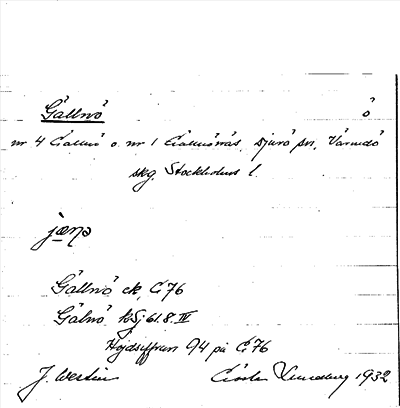 Gällnö ö
nr 4 Gällnö o. nr 1 Gällnönäs, Djurö sn, Värmdö
skg Stockholms l.
Gällnö ek, C 76
Gälnö
Höjdsiffran 94 på C 76
J. Westin Gösta Lundberg 1932